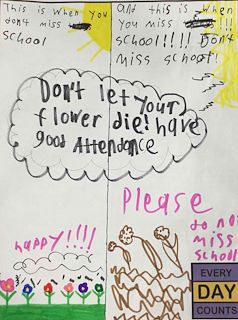 This is When you
miss
School
and this is When
you miss !!!
school!!!! Don't
miss school!
Don't let your
flower die! have
good Attendance
Please
do not
miss
school
happy!!!!
EVERY
DAY
COUNTS